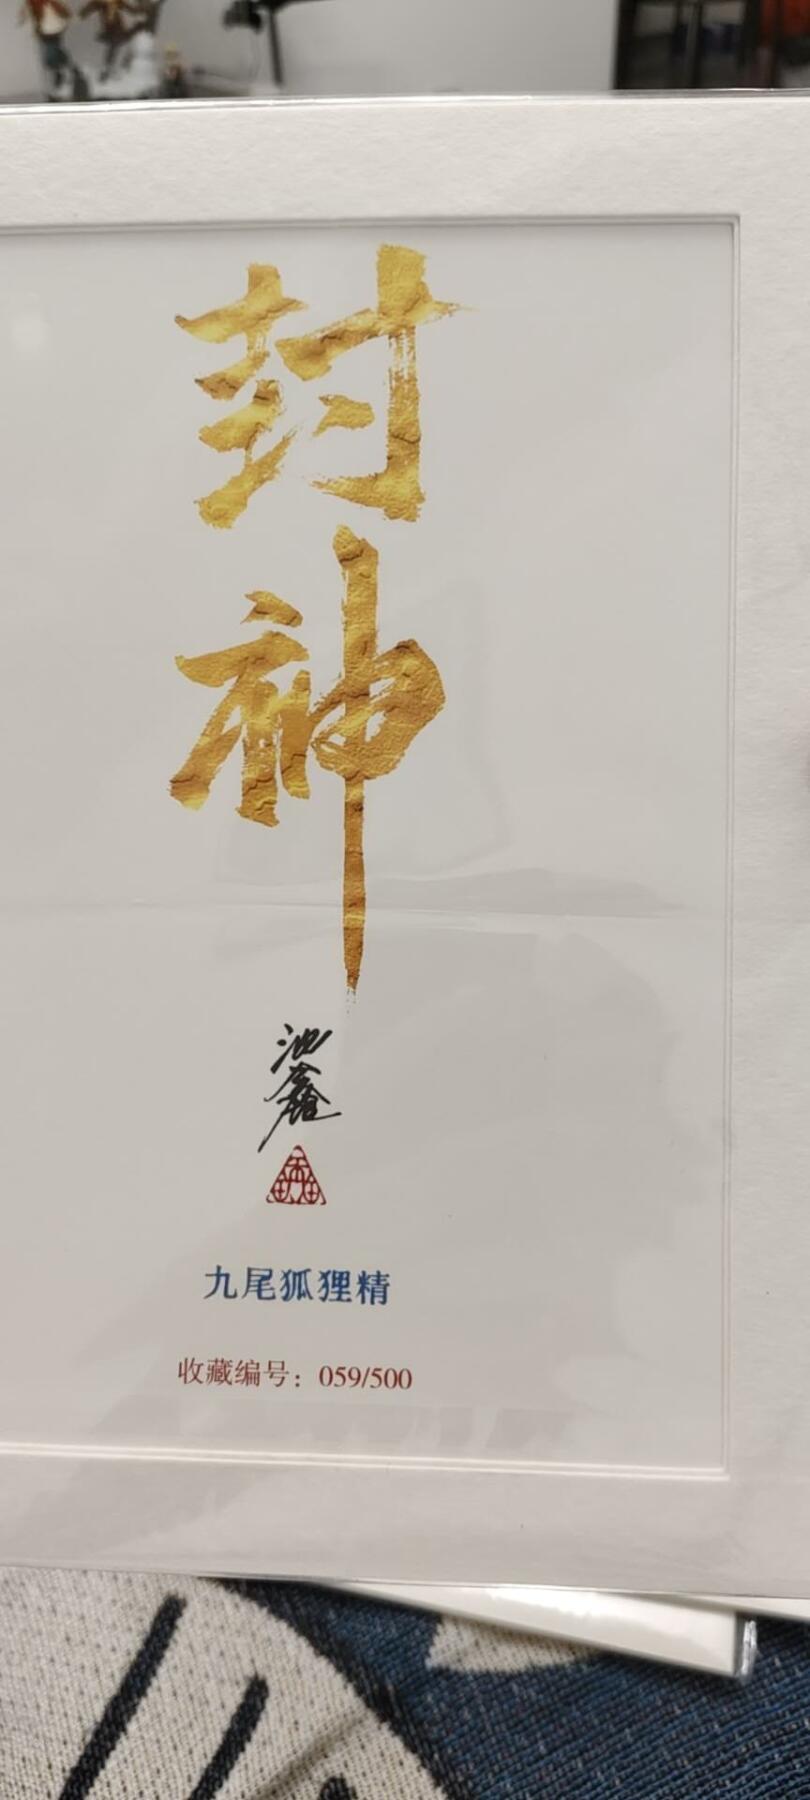 封
神
池鑫
九尾狐狸精
收藏编号：059/500